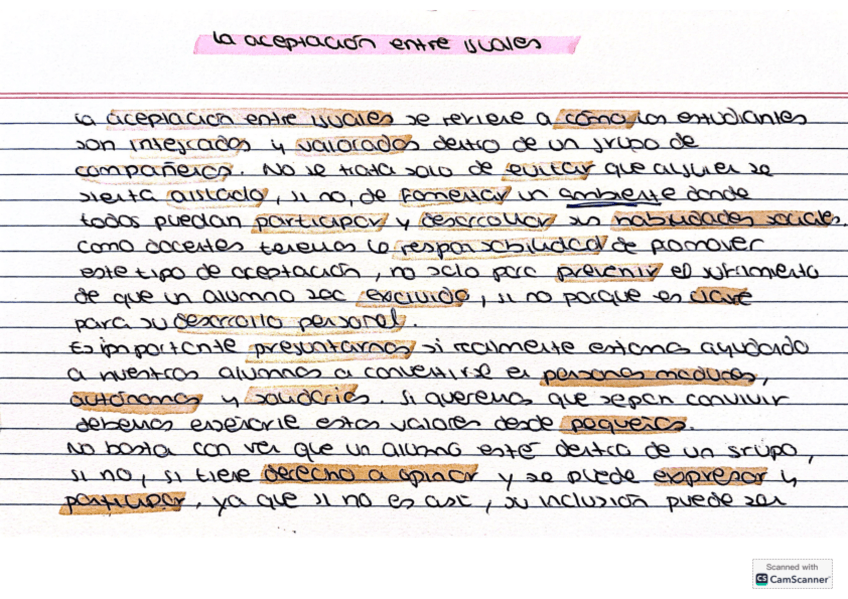 La aceptación entre iguales
La aceptación entre iguales se refiere a cómo los estudiantes
son integrados y valorados dentro de un grupo de
compañeros. No se trata solo de evitar que alguien se
sienta aislado, si no, de fomentar un ambiente donde
todos puedan participar y desarrollar sus habilidades sociales.
Como docentes tenemos la responsabilidad de promover
este tipo de aceptación, no solo para prevenir el sufrimiento
de que un alumno sea excluido, si no porque es clave
para su desarrollo personal.
Es importante preguntarnos si realmente estamos ayudando
a nuestros alumnos a convertirse en personas maduras,
autónomas y solidarias. Si queremos que sepan convivir
debemos enseñarle estos valores desde pequeños.
No basta con ver que un alumno esté dentro de un grupo,
si no, si tiene derecho a opinar y se puede expresar y
participar, ya que si no es así, su inclusión puede ser
Scanned with
CS CamScanner